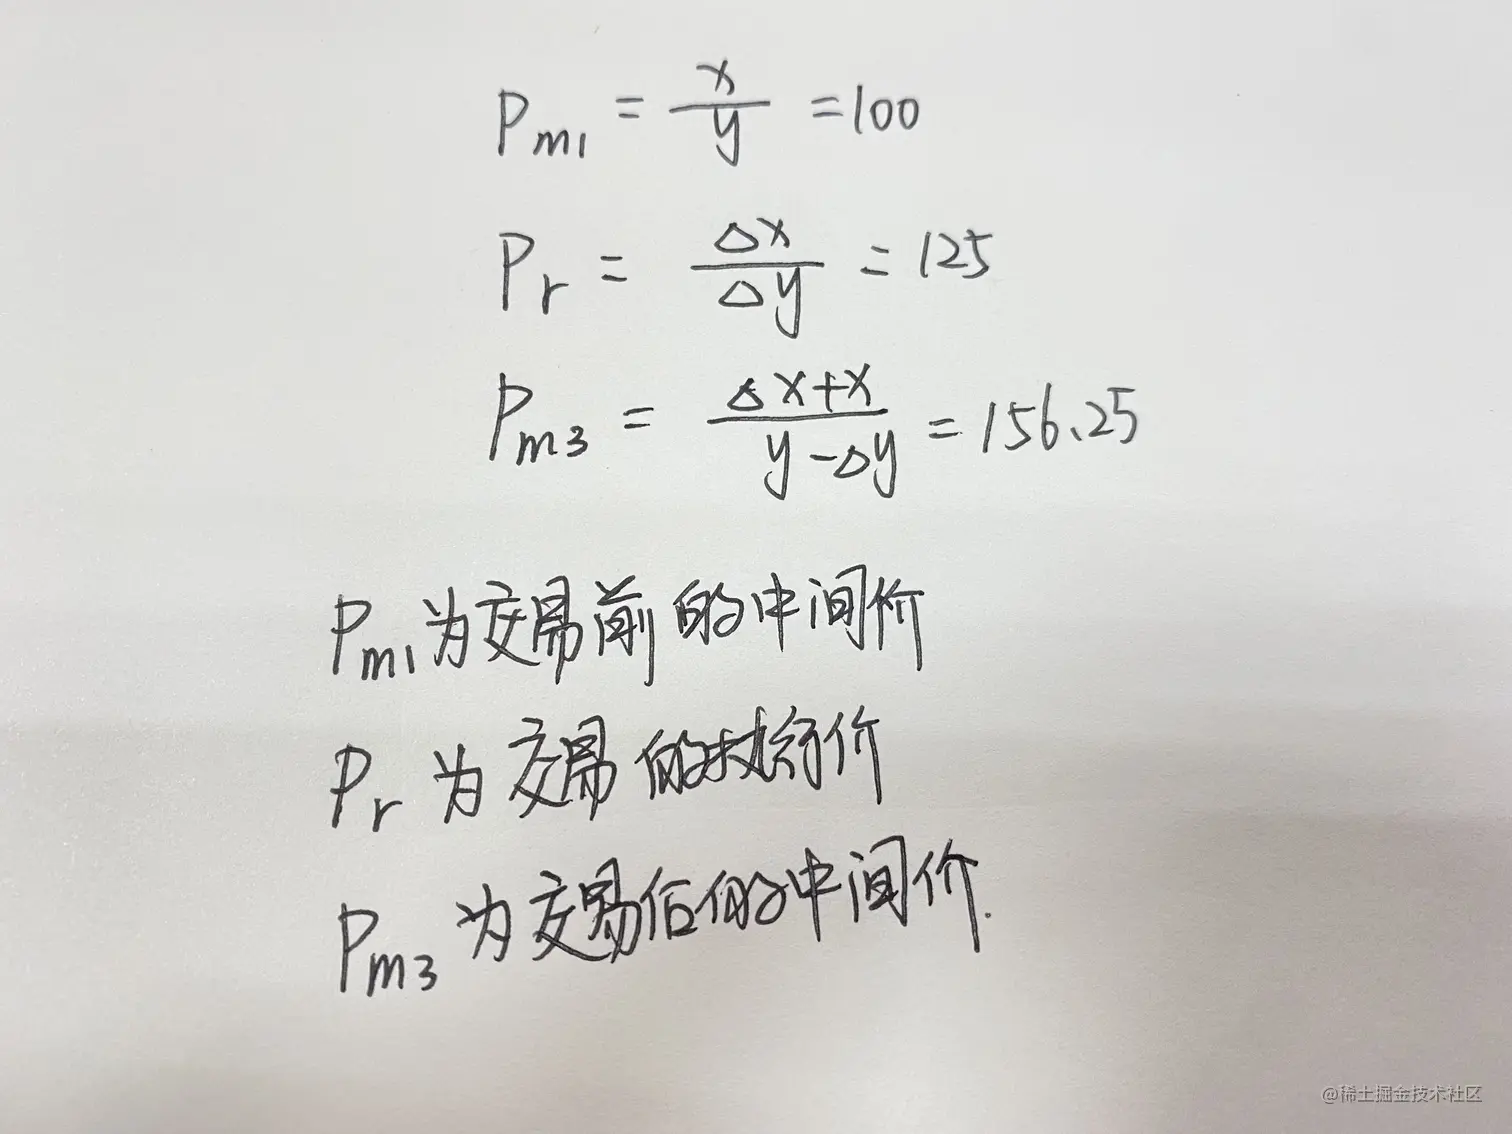 Pm1 = x/y = 100
Pr = Δx/Δy = 125
Pm3 = Δx+x/y-Δy = 156.25
Pm1为交易前的中间价
Pr为交易的执行价
Pm3为交易后的中间价.
@稀土掘金技术社区